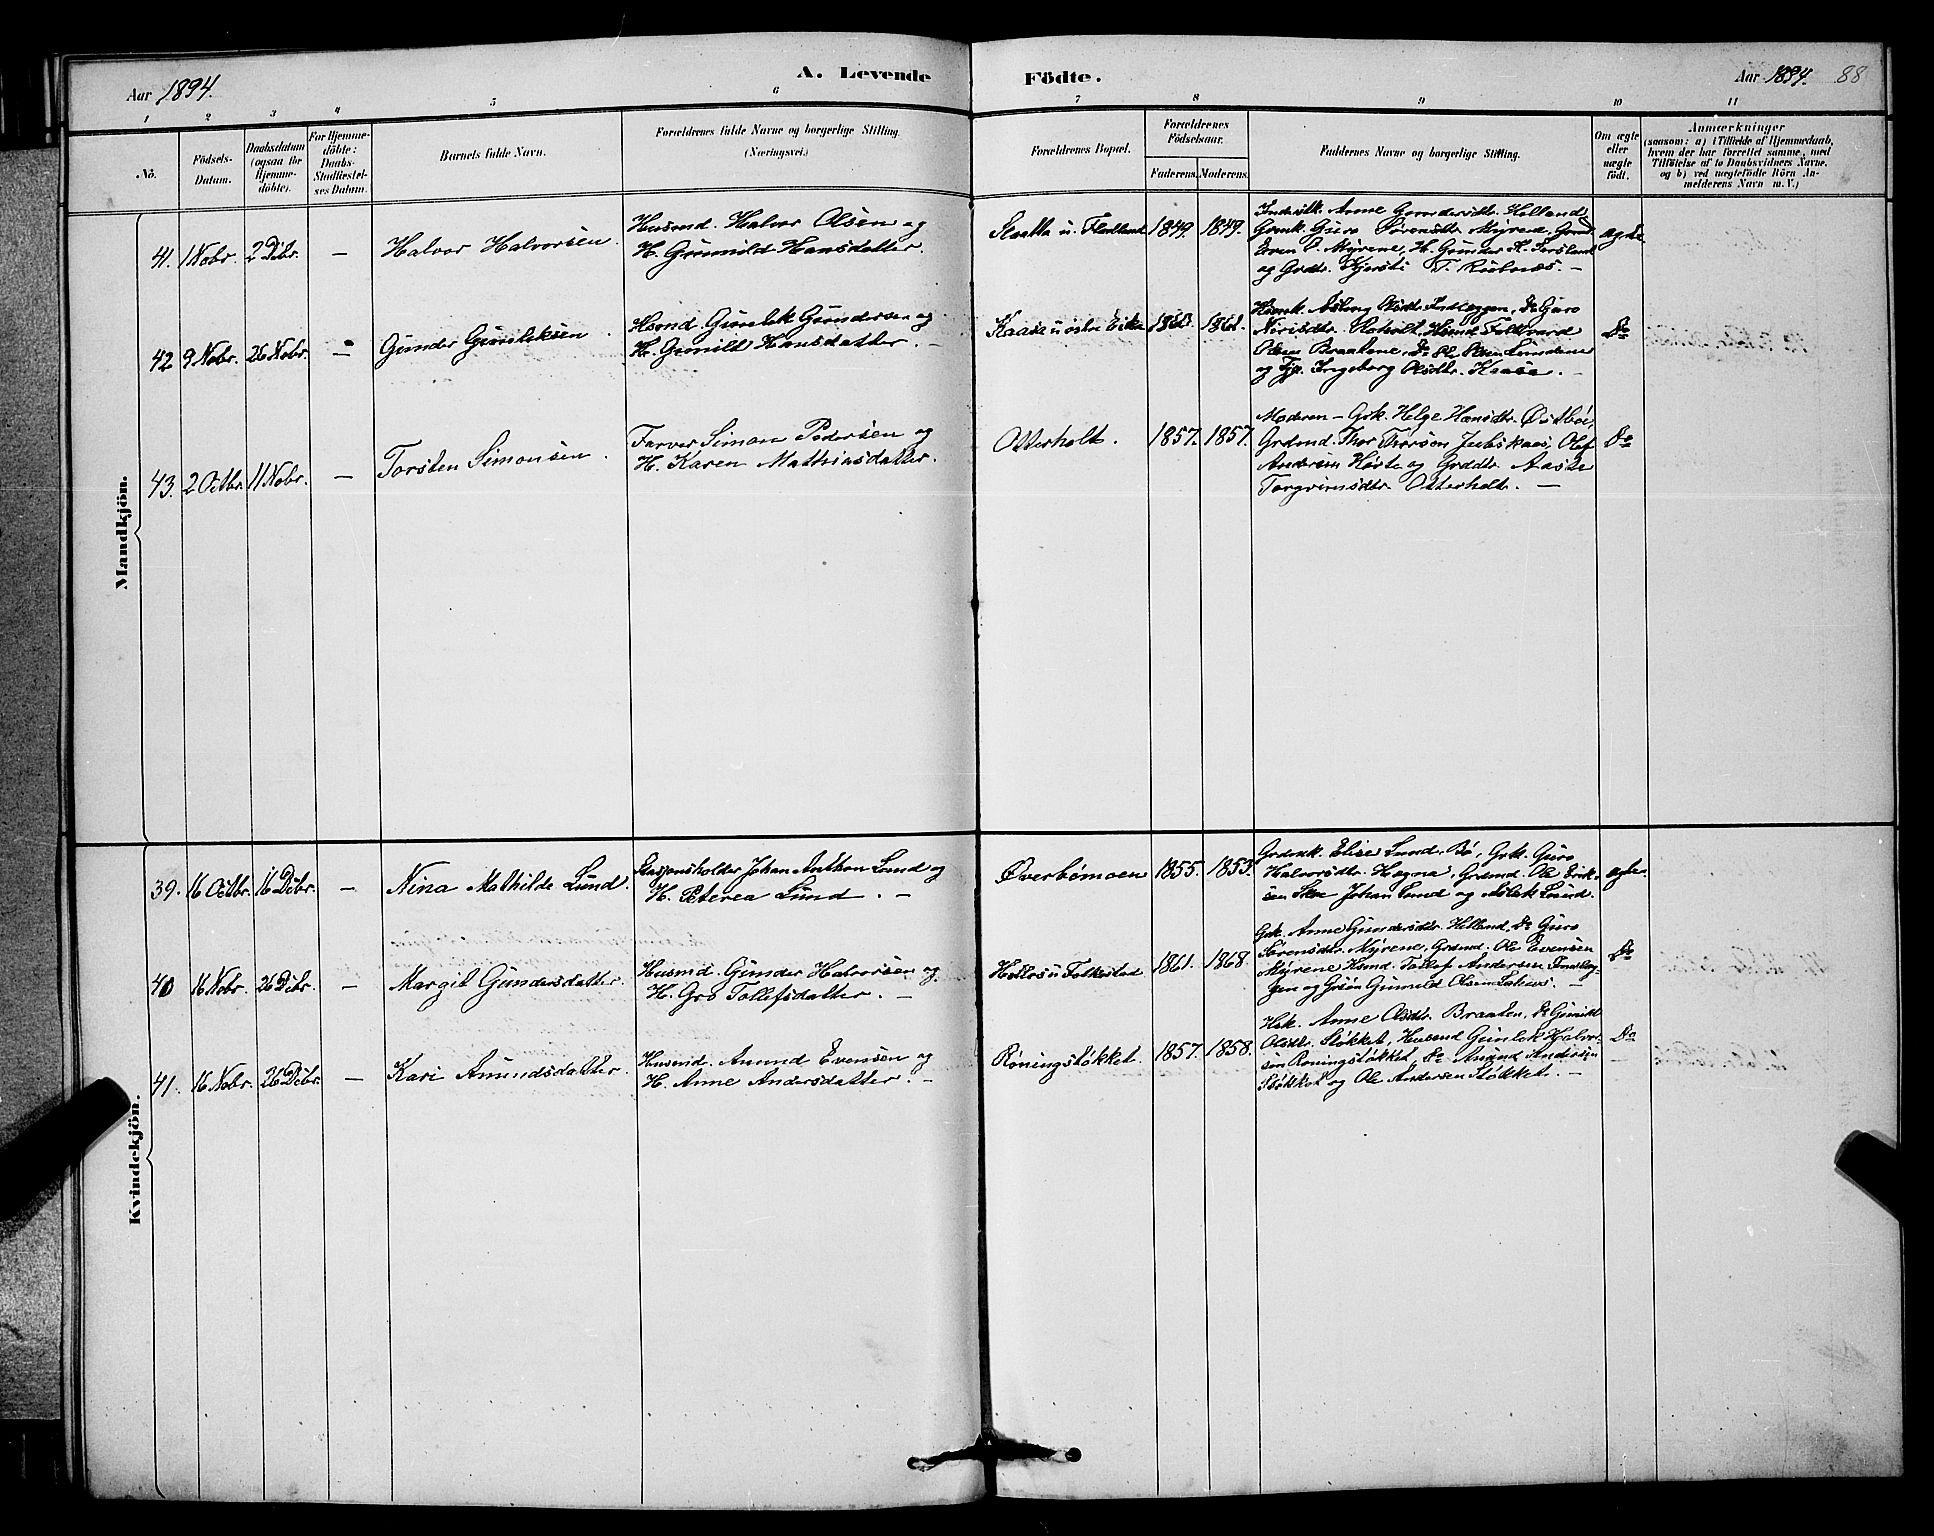 Aar 1894.
A. Levende
Födte.
Aar 1894. 88
1 2 3 4 5 6 7 8 9 10 11
No.
Födsels-Datum.
Daabsdatum (ogsaa for Hjemme-döbte).
For Hjemme-döbte: Daabs-Stadfæstel-ses Datum.
Barnets fulde Navn.
Forældrenes fulde Navne og borgerlige Stilling.
(Næringsvei.)
Forældrenes Bopæl.
Forældrenes Födselsaar.
Faderens. Moderens.
Faddernes Navne og borgerlige Stilling.
Om ægte eller uægte født.
Anmærkninger
(saasom: a) i Tilfælde af Hjemmedaab,
hvem der har forrettet samme, med
Tilføielse af to Daabsvidners Navne.
og b) ved uægtefödte Börn An-
melderens Navn m. V.)
Mandkjön.
41. 1 Nobr. 2 Debr. — Halvor Halvorsen.
Husmd. Halvor Olsen og
H. Gunnild Hansdatter.
1849. 1849.
Anne Gundersdtr. Helland,
Guro Sørensdtr. Myrene,
Even Myrene, H. Gunder
og Grdtr. Kjersti T. —
ægte
42 9 Nobr. 26 Nobr. — Gunder Gunleksen.
Hsmd. Gunlek Gundersen og
H. Gunild Hansdatter. —
Kaasa u. østre Eika
1861.
Guro
Folkvard
Olsen Braatene,
og Ingeborg Olsdtr. Kaasa. —
Do
43. 2 Octbr. 11 Nobr. — Torsten Simonsen.
Farver Simon Pedersen og
H. Karen Mathiasdatter.
Otterholt. 1857. 1857.
Moderen — Grk. Helge Hansdtr. Østbøe,
Grdmd. Thor Thorsen Olef
Andersen Hørte og Grddtr. Aaste
Torgrimsdtr. Otterholt. —
Do
Kvindekjön.
39. 16 Octbr. 16 Debr. — Nina Mathilde Lund.
Stasjonsholder Johan Anthon Lund og
H. Peterea Lund. —
Øverbømoen 1855. 1853.
Elise Lund, Bø, Grk. Guro
Halvorsdtr. Hagna, Grdmd. Ole Erik-
sen Johan Lund og Lund.
ægte.
40 16 Nobr. 26 Debr. — Margit Gundersdatter.
Husmd. Gunder Halvorsen og
H. Gro Tollefsdatter. —
u. Folkestad 1861. 1868.
Grk. Anne Gundersdtr. Helland, Do Guro
Sørensdtr. Myrene, Grdmd. Ole Evensen
Myrene Hsmd. Tollef Andersen
gen og Gunnild Olsen —
Do
41. 16 Nobr. 26 Debr. — Kari Amundsdatter.
Husmd. Amund Evensen og
H. Anne Andersdatter. —
Røningstøkket. 1857. 1858.
Hsk. Anne Olsdtr. Braaten, Do Gunild
Olsdtr. Støkket, Husmd Gunlek Halvor-
sen Roningstøkket, Do Amund Andersen
Støkket og Ole Andersen Støkket. —
Do